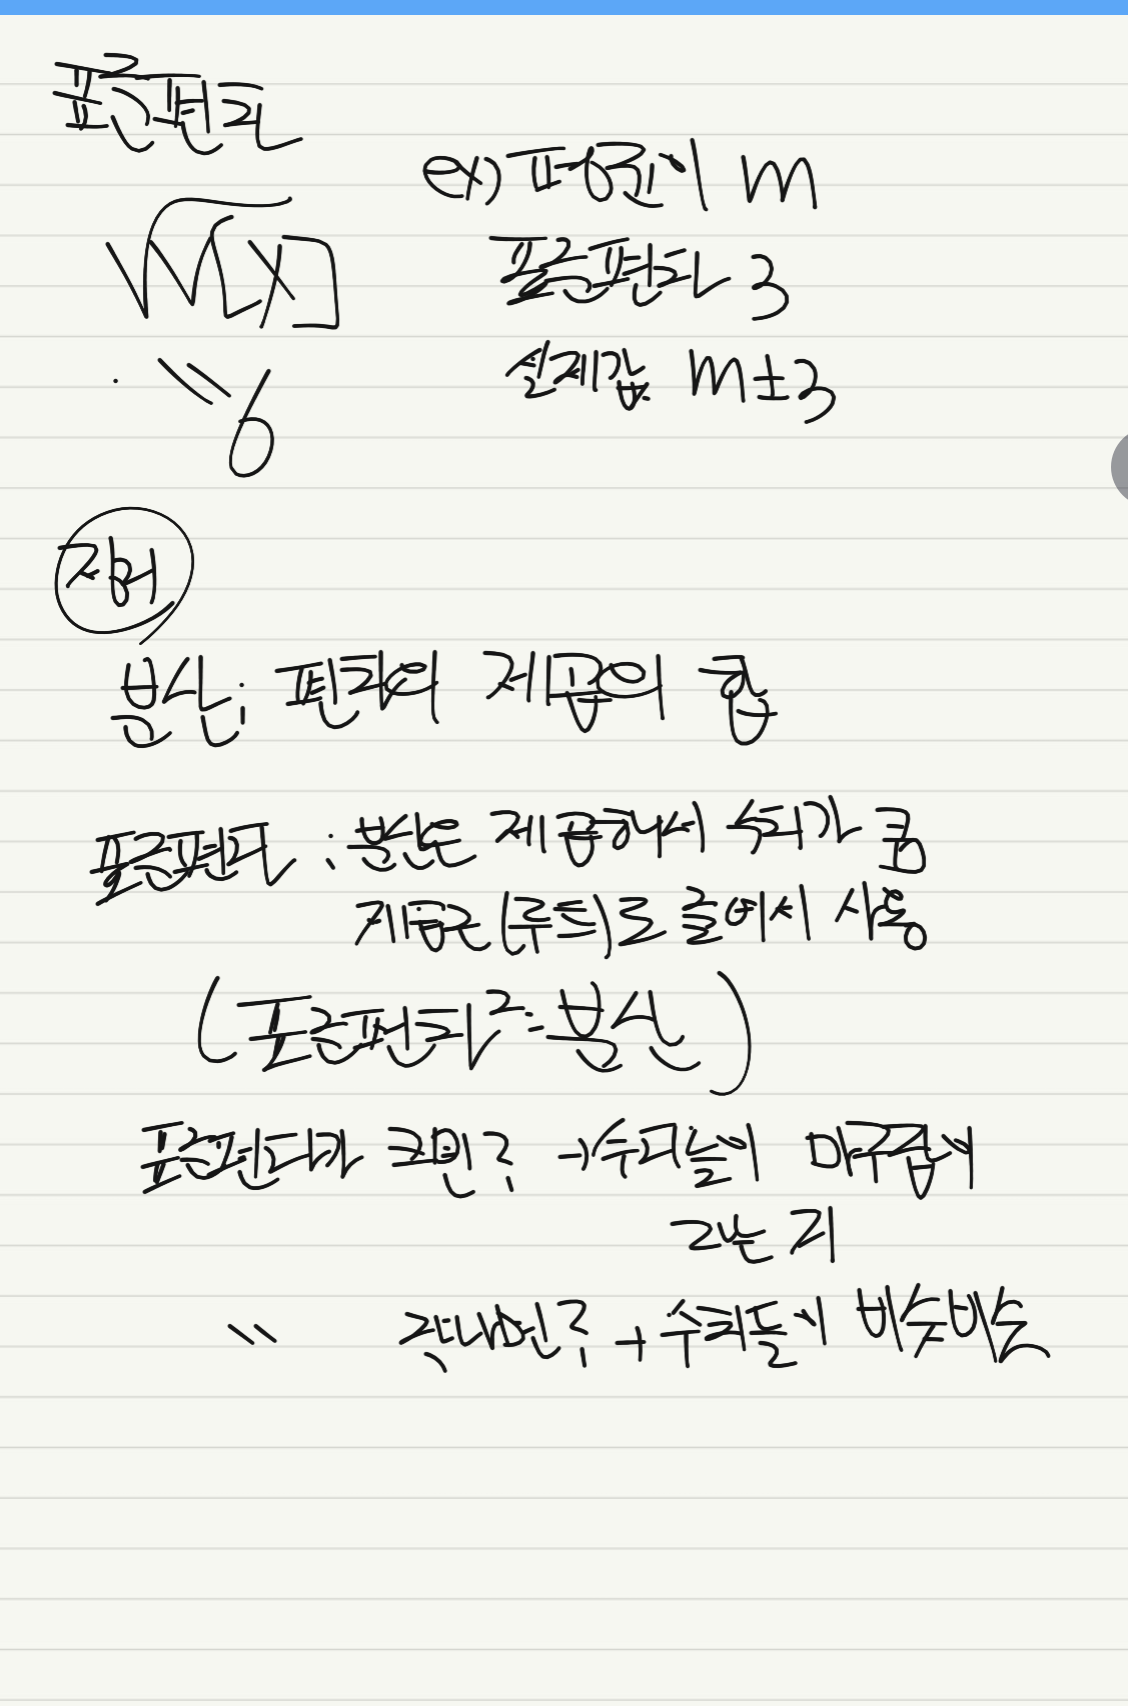 표준편차
ex) 평균이 m
√V[X]
표준편차 3
〃 6
실제값 m±3
분산: 편차의 제곱의 합
표준편차 : 분산은 제곱해서 수치가 큼
제곱근(루트)로 줄여서 사용
(표준편차² = 분산)
표준편차가 크면? → 수치들이 마구잡이
라는 거
〃 작나면? → 수치들이 비슷비슷